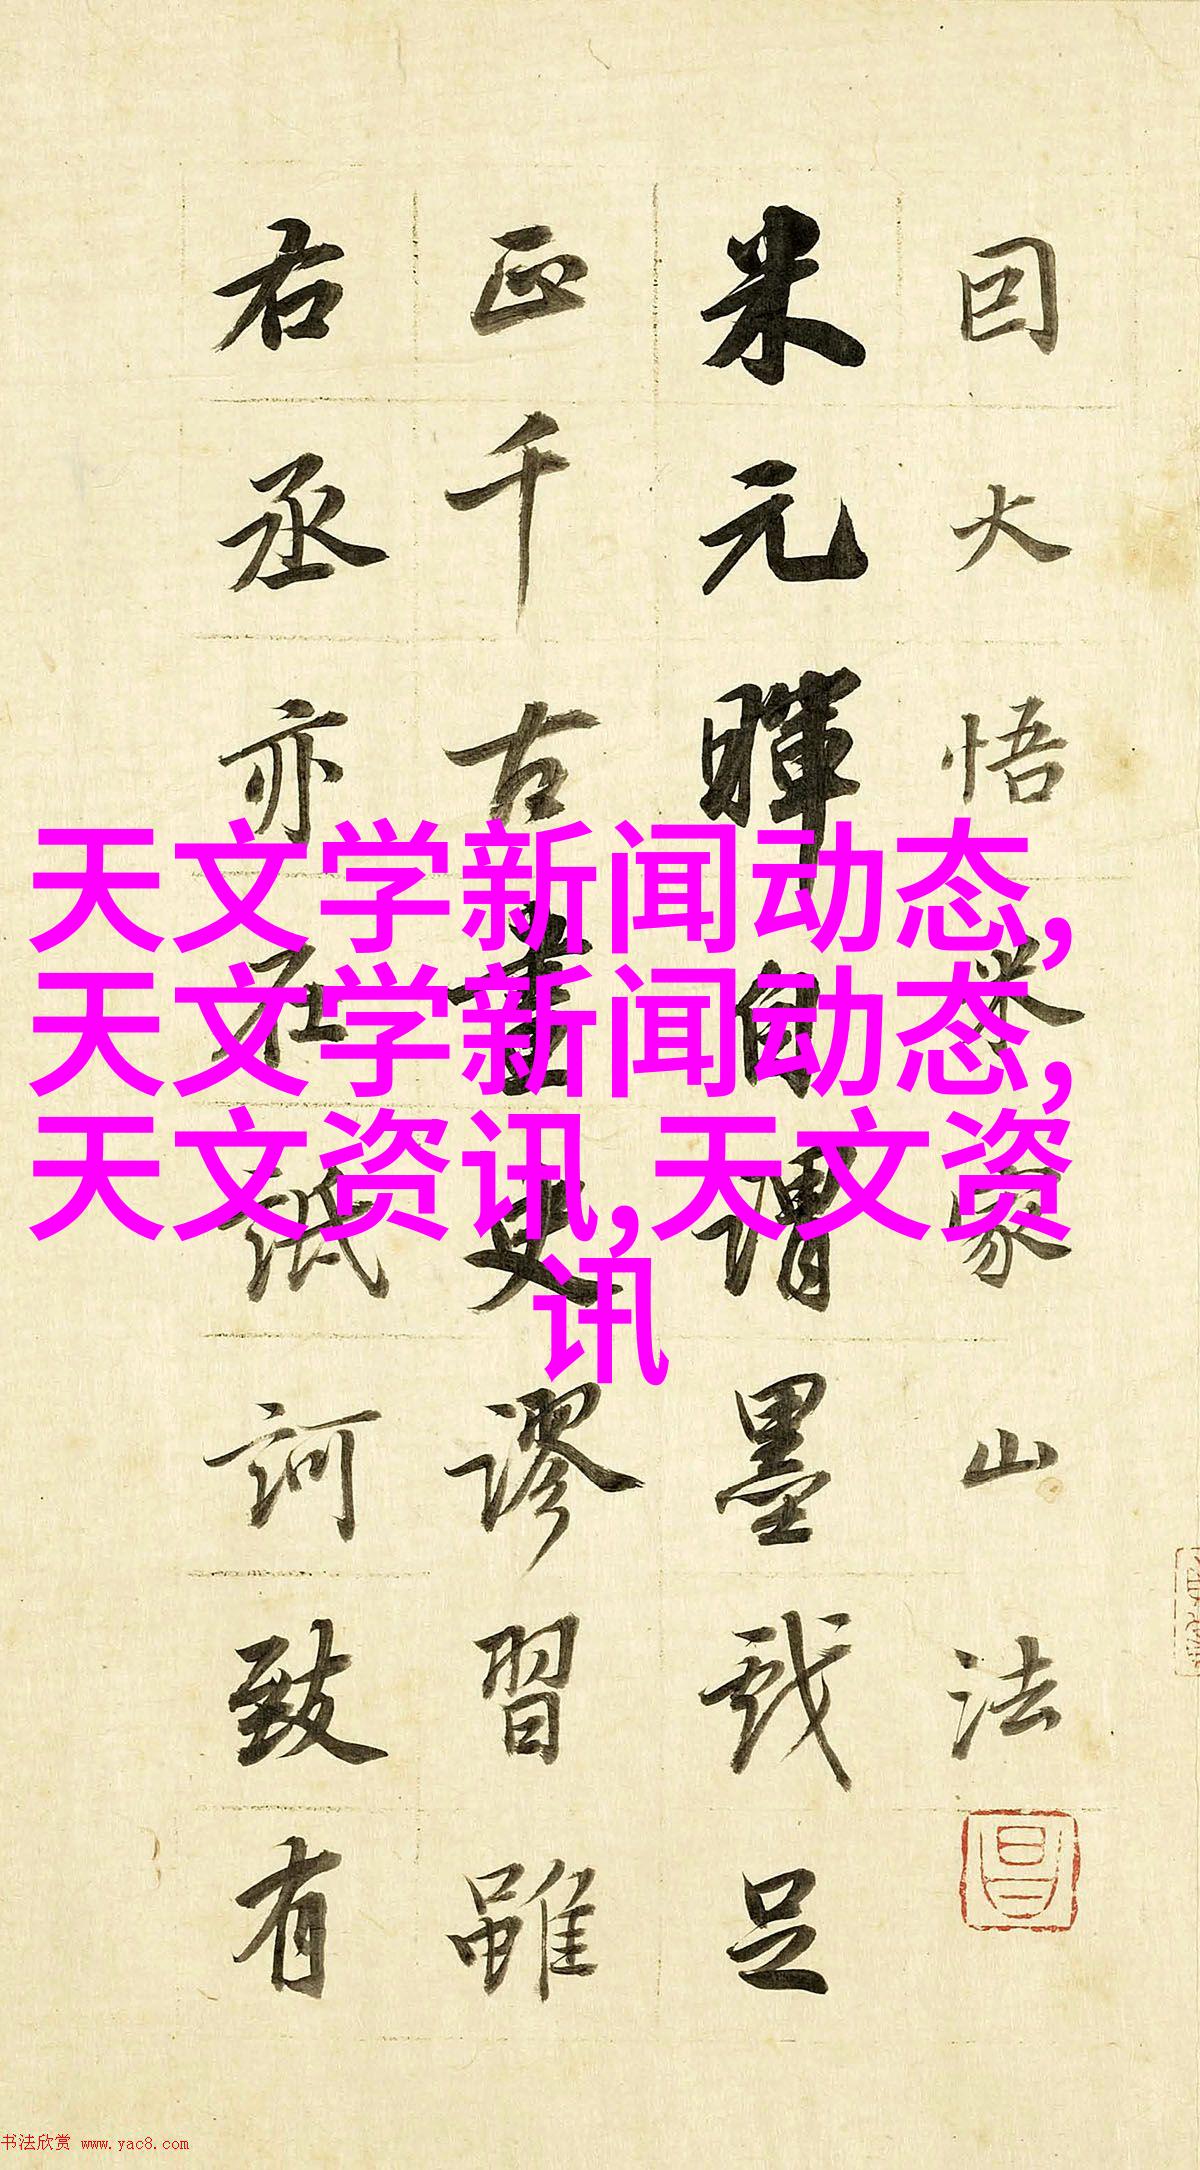 因大悟米家山法
米元暉自謂墨戲足
正千古畫史謬習雖
右丞亦在詆訶致有
天文学新闻动态,
天文学新闻动态,
天文资讯,天文资
讯
书法欣赏 www.yac8.com